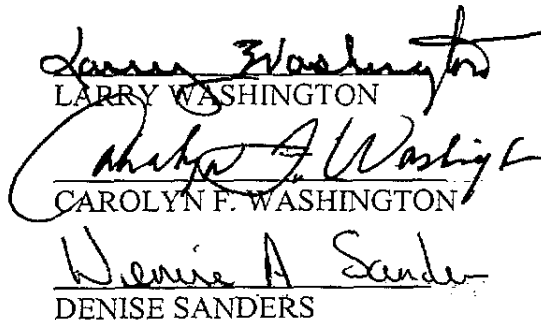 Larry Washington
LARRY WASHINGTON
Carolyn F. Washington
CAROLYN F. WASHINGTON
Denise A Sanders
DENISE SANDERS